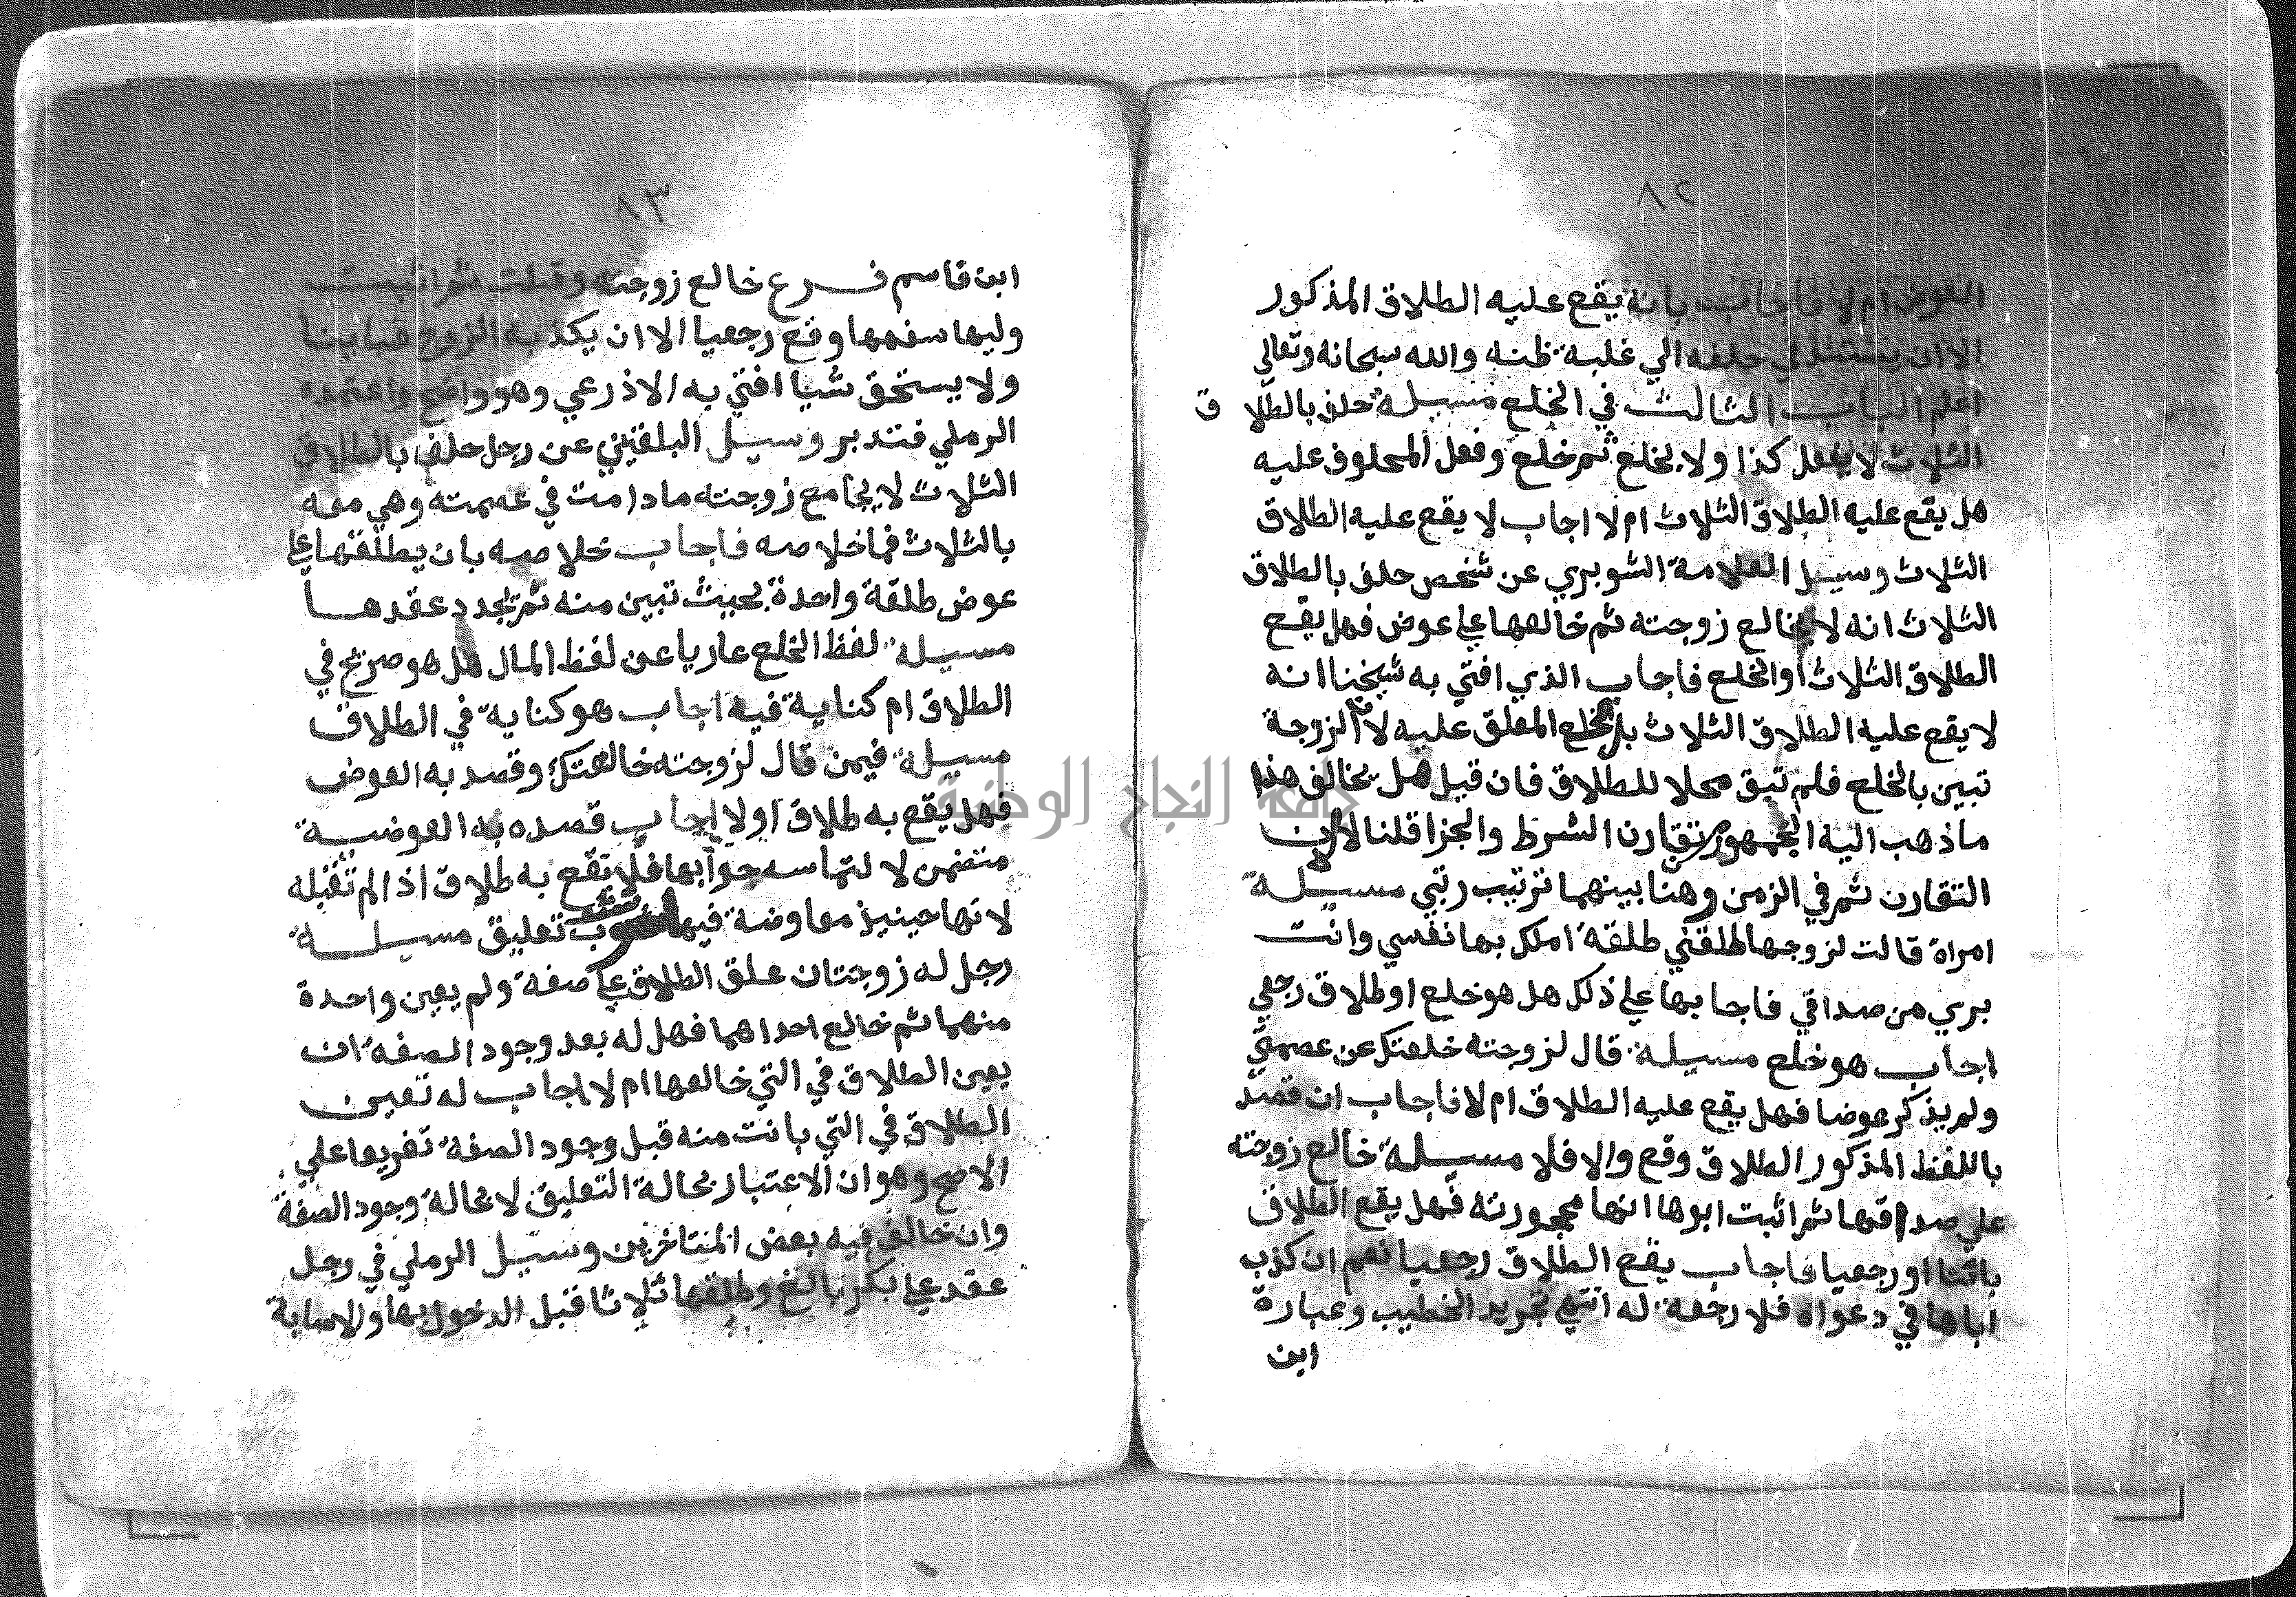 ٨٢
العوض ام لا فاجاب بانه يقع عليه الطلاق المذكور
الا ان يستند في حلفه الي غلبة ظنه والله سبحانه وتعالي
اعلم الباب الثالث في الخلع مسيلة حلف بالطلا ق
الثلاث لا يفعل كذا ولا يخلع ثم خلع وفعل المحلوف عليه
هل يقع عليه الطلاق الثلاث ام لا اجاب لا يقع عليه الطلاق
الثلاث وسيل العلامة الشوبري عن شخص حلف بالطلاق
الثلاث انه لا يخالع زوجته ثم خالعها علي عوض فهل يقع
الطلاق الثلاث او الخلع فاجاب الذي افتي به شيخنا انه
لا يقع عليه الطلاق الثلاث بل الخلع المعلق عليه لان الزوجة
تبين بالخلع فلم تبق محلا للطلاق فان قيل هل يخالف هذا
ما ذهب اليه الجمهور من تقارن الشرط والجزا قلنا لا لان
التقارن ثم في الزمن وهنا بينهما ترتيب رتبي مسيلة
امراة قالت لزوجها طلقني طلقة املك بها نفسي وانت
بري من صداقي فاجابها علي ذلك هل هو خلع او طلاق رجعي
اجاب هو خلع مسيلة قال لزوجته خلعتك عن عصمتي
ولم يذكر عوضا فهل يقع عليه الطلاق ام لا فاجاب ان قصد
باللفظ المذكور الطلاق وقع والا فلا مسيلة خالع زوجته
علي صداقها ثم اثبت ابوها انها محجورته فهل يقع الطلاق
بائنا او رجعيا فاجاب يقع الطلاق رجعيا نعم ان كذب
اباها في دعواه فلا رجعة له انتهي تجريد الخطيب وعبارة
ابن
٨٣
ابن قاسم فرع خالع زوجته وقبلت ثم اثبت
وليها سفهها وقع رجعيا الا ان يكذبه الزوج فباينا
ولا يستحق شيا افتي به الاذرعي وهو واضح واعتمده
الرملي فتدبر وسيل البلقيني عن رجل حلف بالطلاق
الثلاث لا يجامع زوجته ما دامت في عصمته وهي معه
بالثلاث فما خلاصه فاجاب خلاصه بان يطلقها علي
عوض طلقة واحدة بحيث تبين منه ثم يجدد عقدها
مسيلة لفظ الخلع عاريا عن لفظ المال هل هو صريح في
الطلاق ام كناية فيه اجاب هو كناية في الطلاق
مسيلة فيمن قال لزوجته خالعتك وقصد به العوض
فهل يقع به طلاق او لا اجاب قصده به العوضية
متضمن لا لتماسه جوابها فلا تقع به طلاق اذا لم تقبله
لانها حينيذ معاوضة فيها شوب تعليق مسيلة
رجل له زوجتان علق الطلاق علي صفة ولم يعين واحدة
منهما ثم خالع احداهما فهل له بعد وجود الصفه ان
يعين الطلاق في التي خالعها ام لا اجاب له تعيين
الطلاق في التي بانت منه قبل وجود الصفة تفريعا علي
الاصح وهو ان الاعتبار بحالة التعليق لا بحالة وجود الصفة
وان خالف فيه بعض المتاخرين وسيل الرملي في رجل
عقد علي بكر بالغ وطلقها ثلاثا قبل الدخول بها والاصابة
جامعة النجاح الوطنية